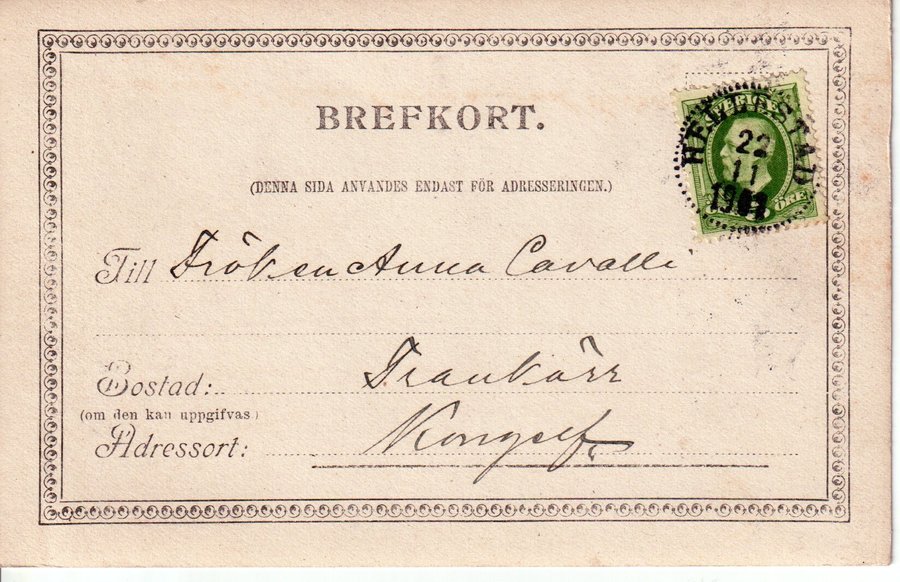 BREFKORT.
(DENNA SIDA ANVANDES ENDAST FÖR ADRESSERINGEN.)
SVERIGE
ÖRE
22
11
Till Fröken Anna Cavalli
Bostad: Trankärr
(om den kan uppgifvas)
Adressort: Kongself,